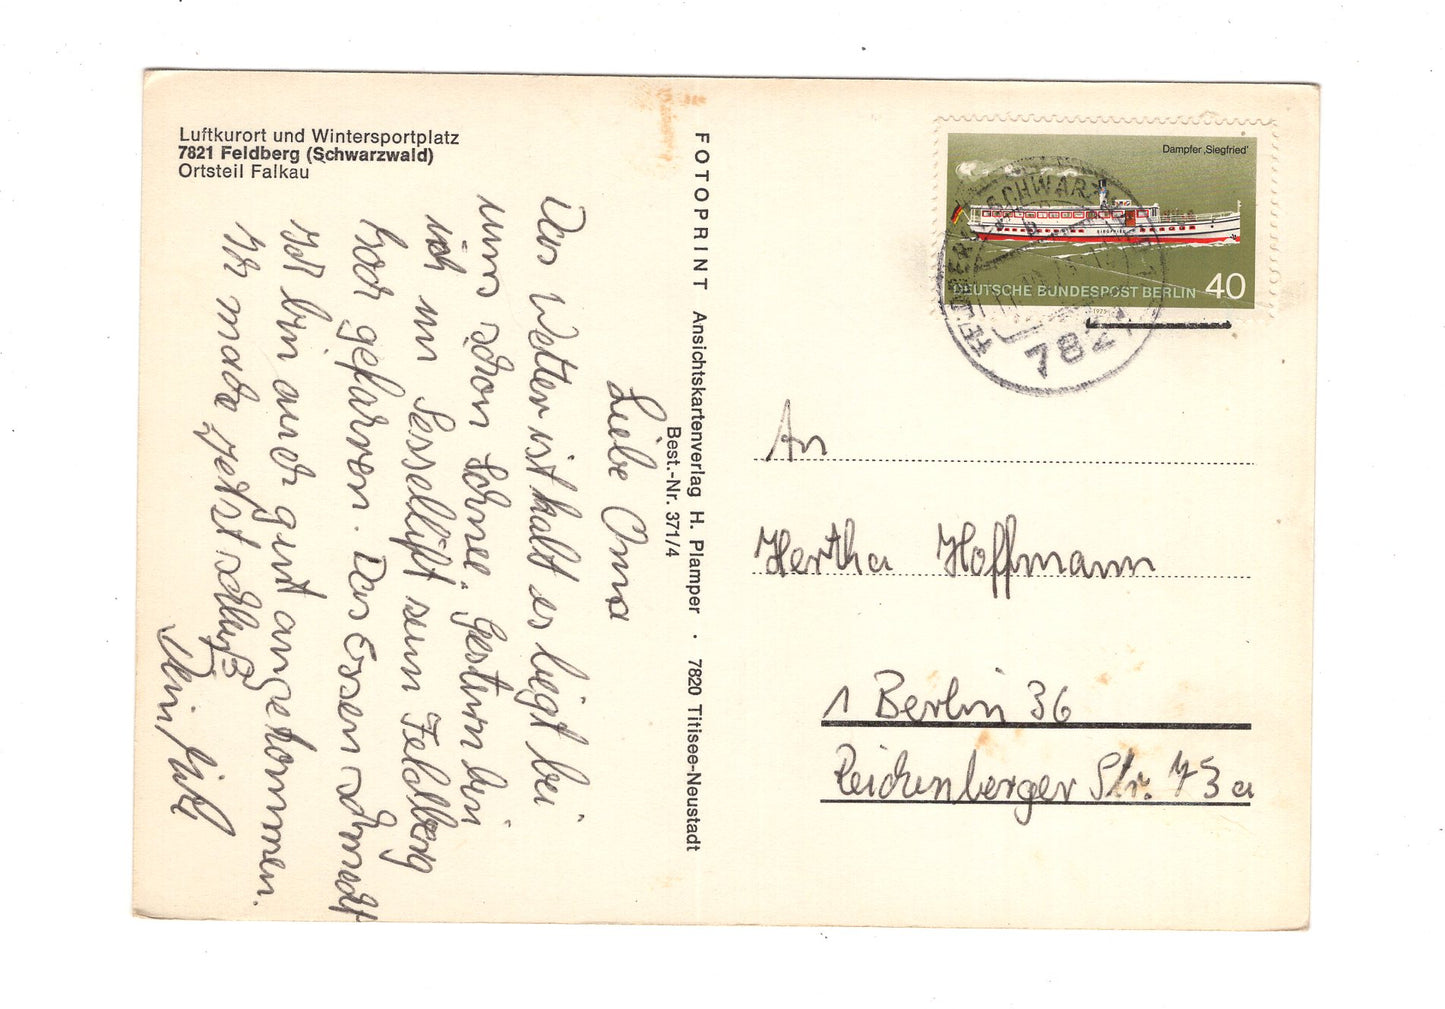 Luftkurort und Wintersportplatz
7821 Feldberg (Schwarzwald)
Ortsteil Falkau
Liebe Oma
Das Wetter ist kalt es liegt bei
uns schon Schnee. Gestern bin
ich im Sessellift zum Feldberg
hoch gefaren. Das Essen schmeckt
Ich bin auch gut angekommen.
Ich mache jetzt schluß
Dein
FOTOPRINT Ansichtskartenverlag H. Plamper · 7820 Titisee-Neustadt
Best.-Nr. 371/4
Dampfer ‚Siegfried'
SIEGFRIED
DEUTSCHE BUNDESPOST BERLIN 40
FELDBERG SCHWARZWALD
7821
An
Hertha Hoffmann
1 Berlin 36
Reichenberger Str. 73a